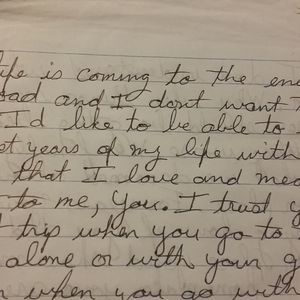 life is coming to the en
oad and I dont want
I'd like to be able to
st years of my life with
that I love and mea
to me, you. I trust y
trip when you go to
alone or with your g
when you go with